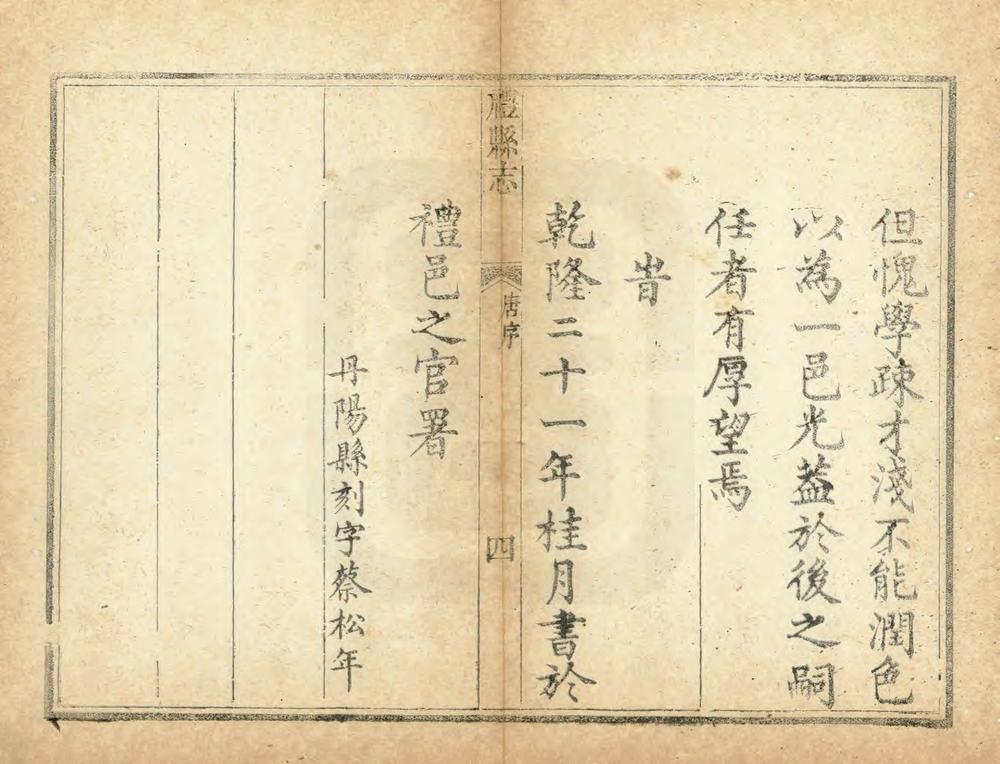 但愧學疎才淺不能潤色
以為一邑光葢於後之嗣
任者有厚望焉
旹
乾隆二十一年桂月書於
禮縣志
唐序
四
禮邑之官署
丹陽縣刻字蔡松年